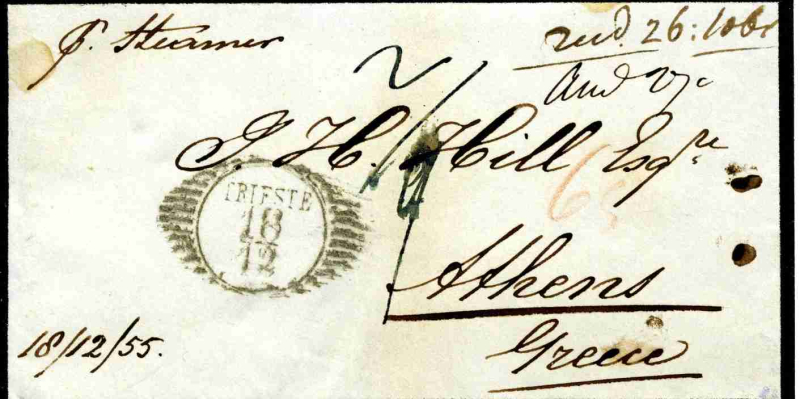 p. Steamer
recd. 26: 10br
and 27c
J. H. Hill Esqre
TRIESTE
18
12
Athens
Greece
18/12/55.